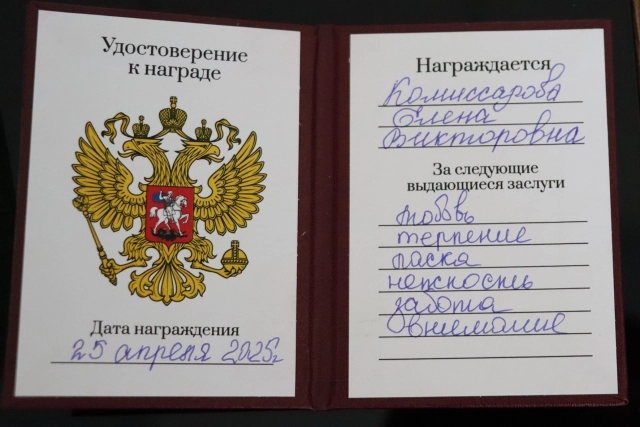 Удостоверение
к награде
Дата награждения
25 апреля 2025г
Награждается
Комиссарова
Елена
Викторовна
За следующие
выдающиеся заслуги
любовь
терпение
ласка
нежность
забота
внимание